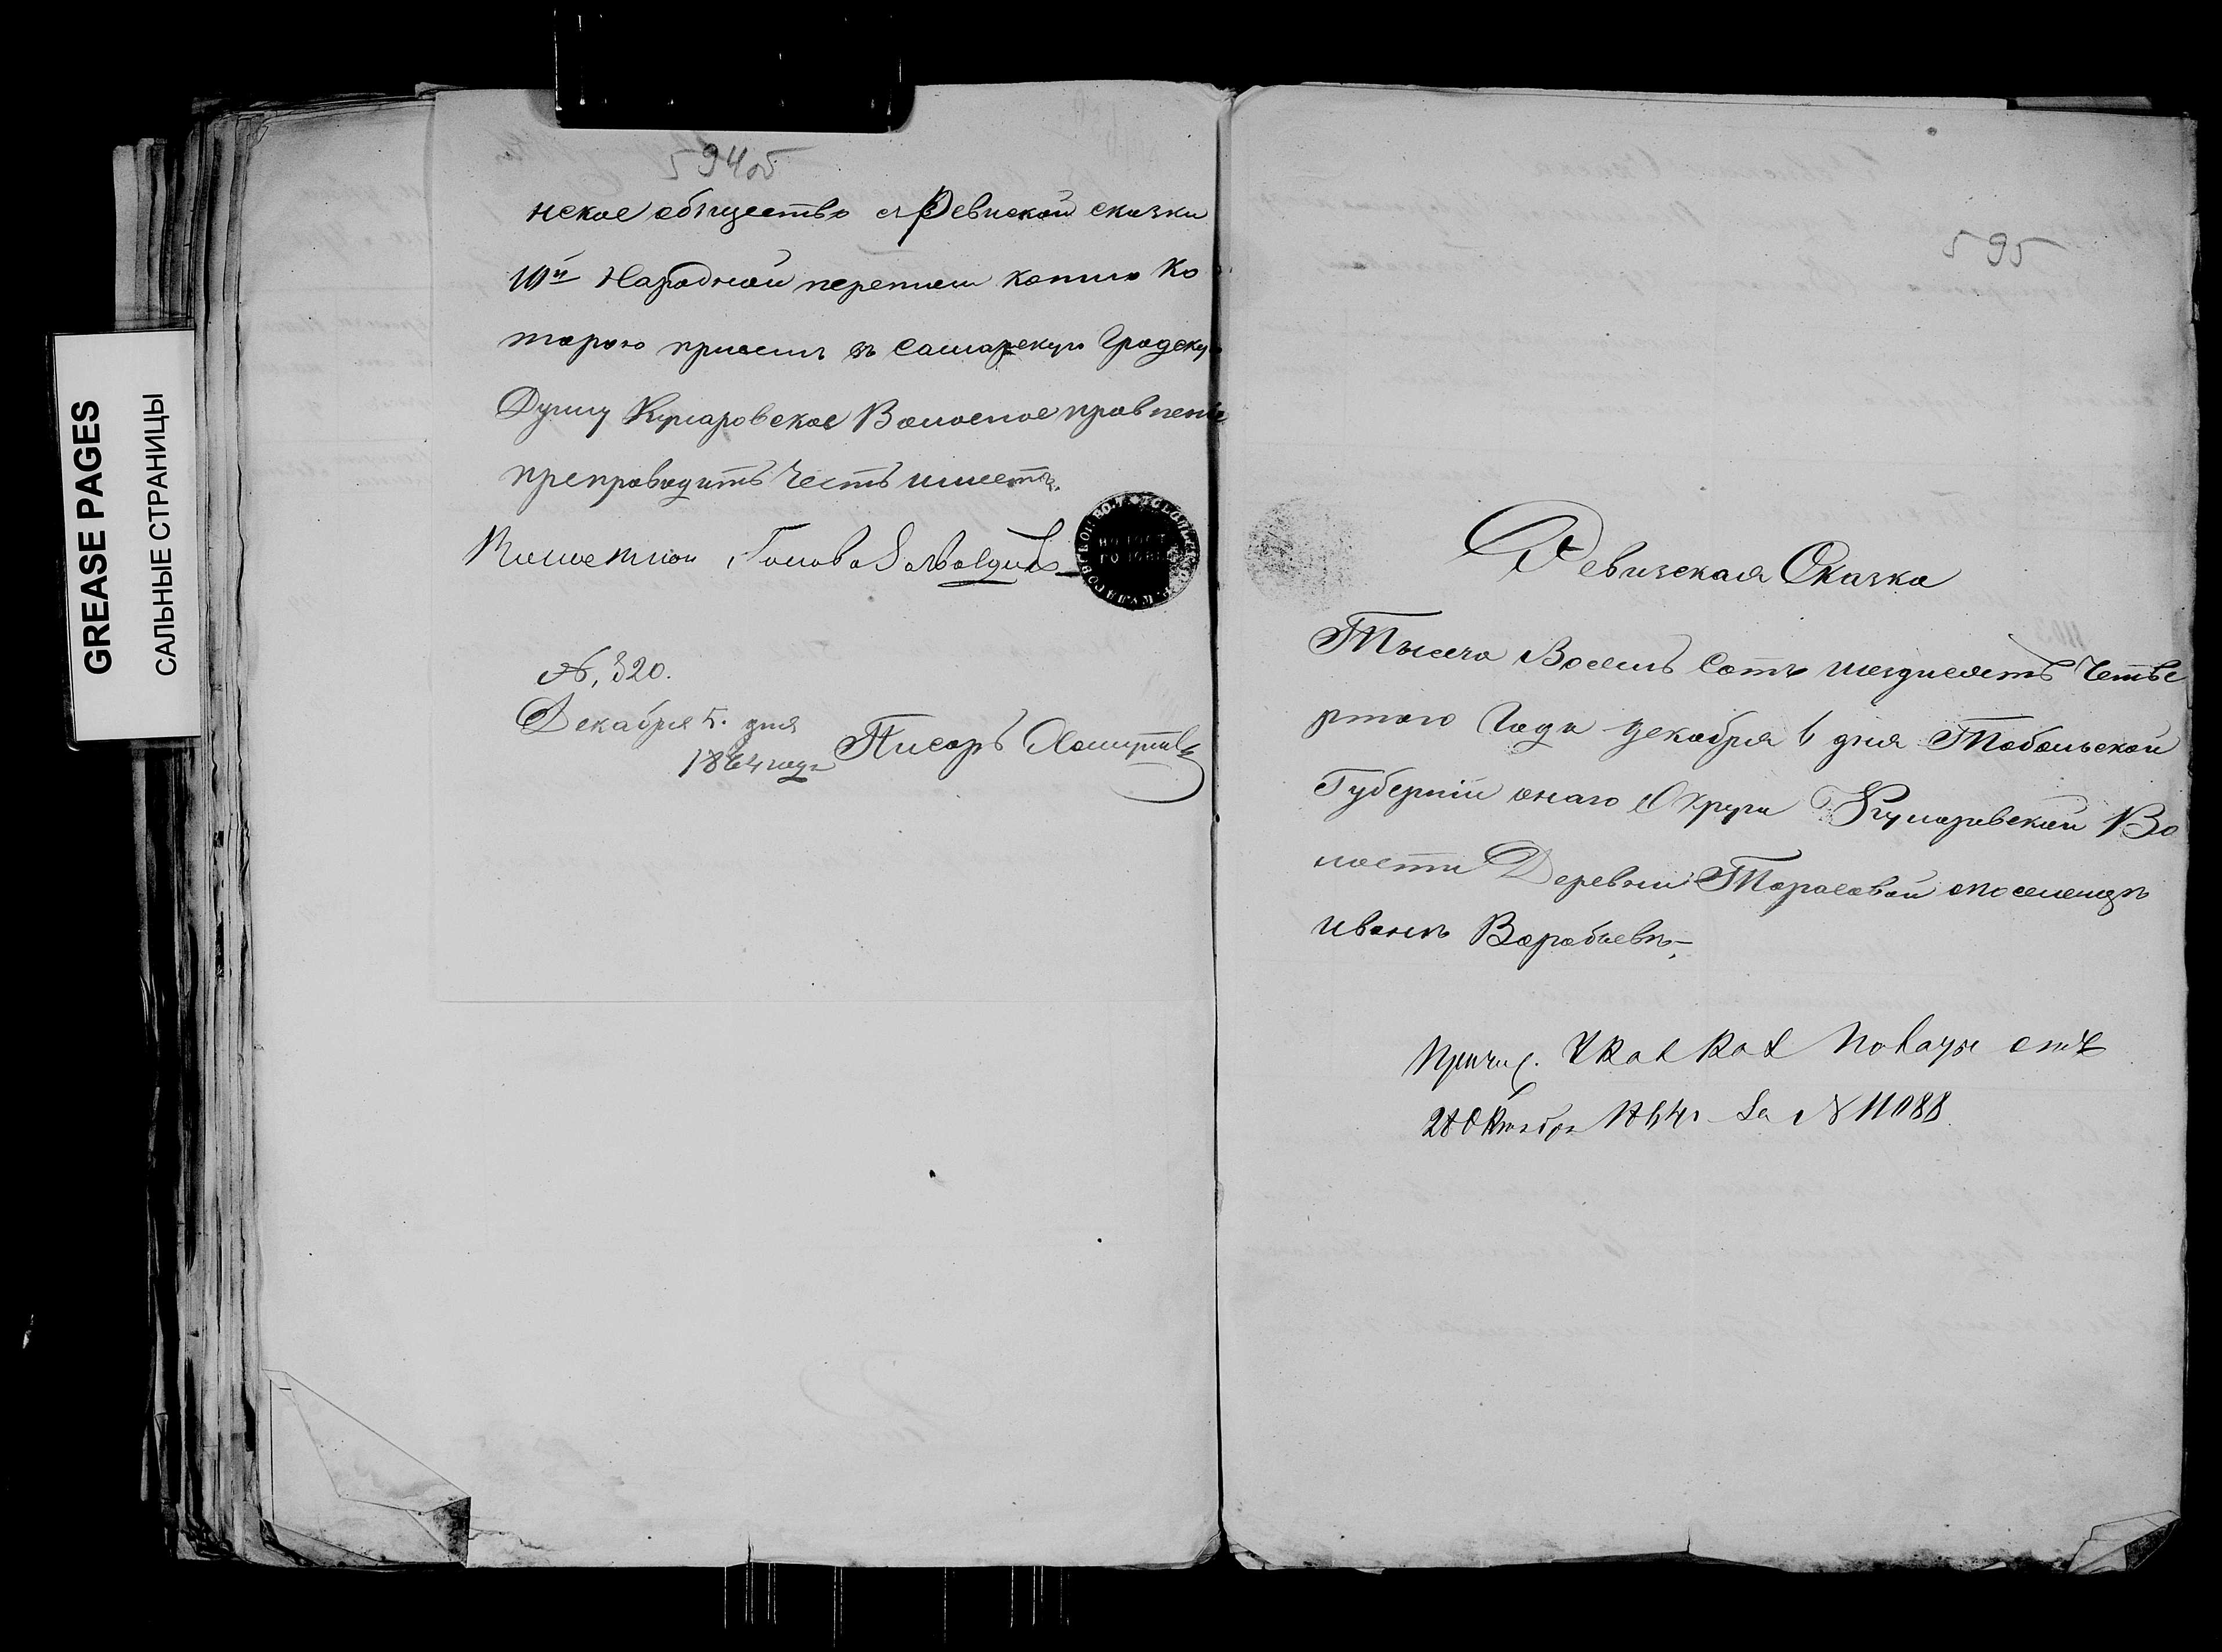 GREASE PAGES
САЛЬНЫЕ СТРАНИЦЫ
594об
нское общество съ Ревиской сказки
10й Народной переписи копию ко
торою просилъ въ Самарскую Градску
Думу Кугаровское Волосное правленіе
препроводить Честь имеетъ.
Голова
№, 320.
Декабря 5. дня
1864 года
Писарь
595
Ревизская Сказка
Тысяча Восемь Сотъ шездисятъ Четве
ртого Года декабря 6 дня Тобольской
Губерніи онаго Округа Кугаровской Во
лости Деревни Тарасовой опоселенцѣ
Иванѣ Воробьевѣ
Причис. Указ Каз Палаты отъ
28 Октября 1864 г За № 11088